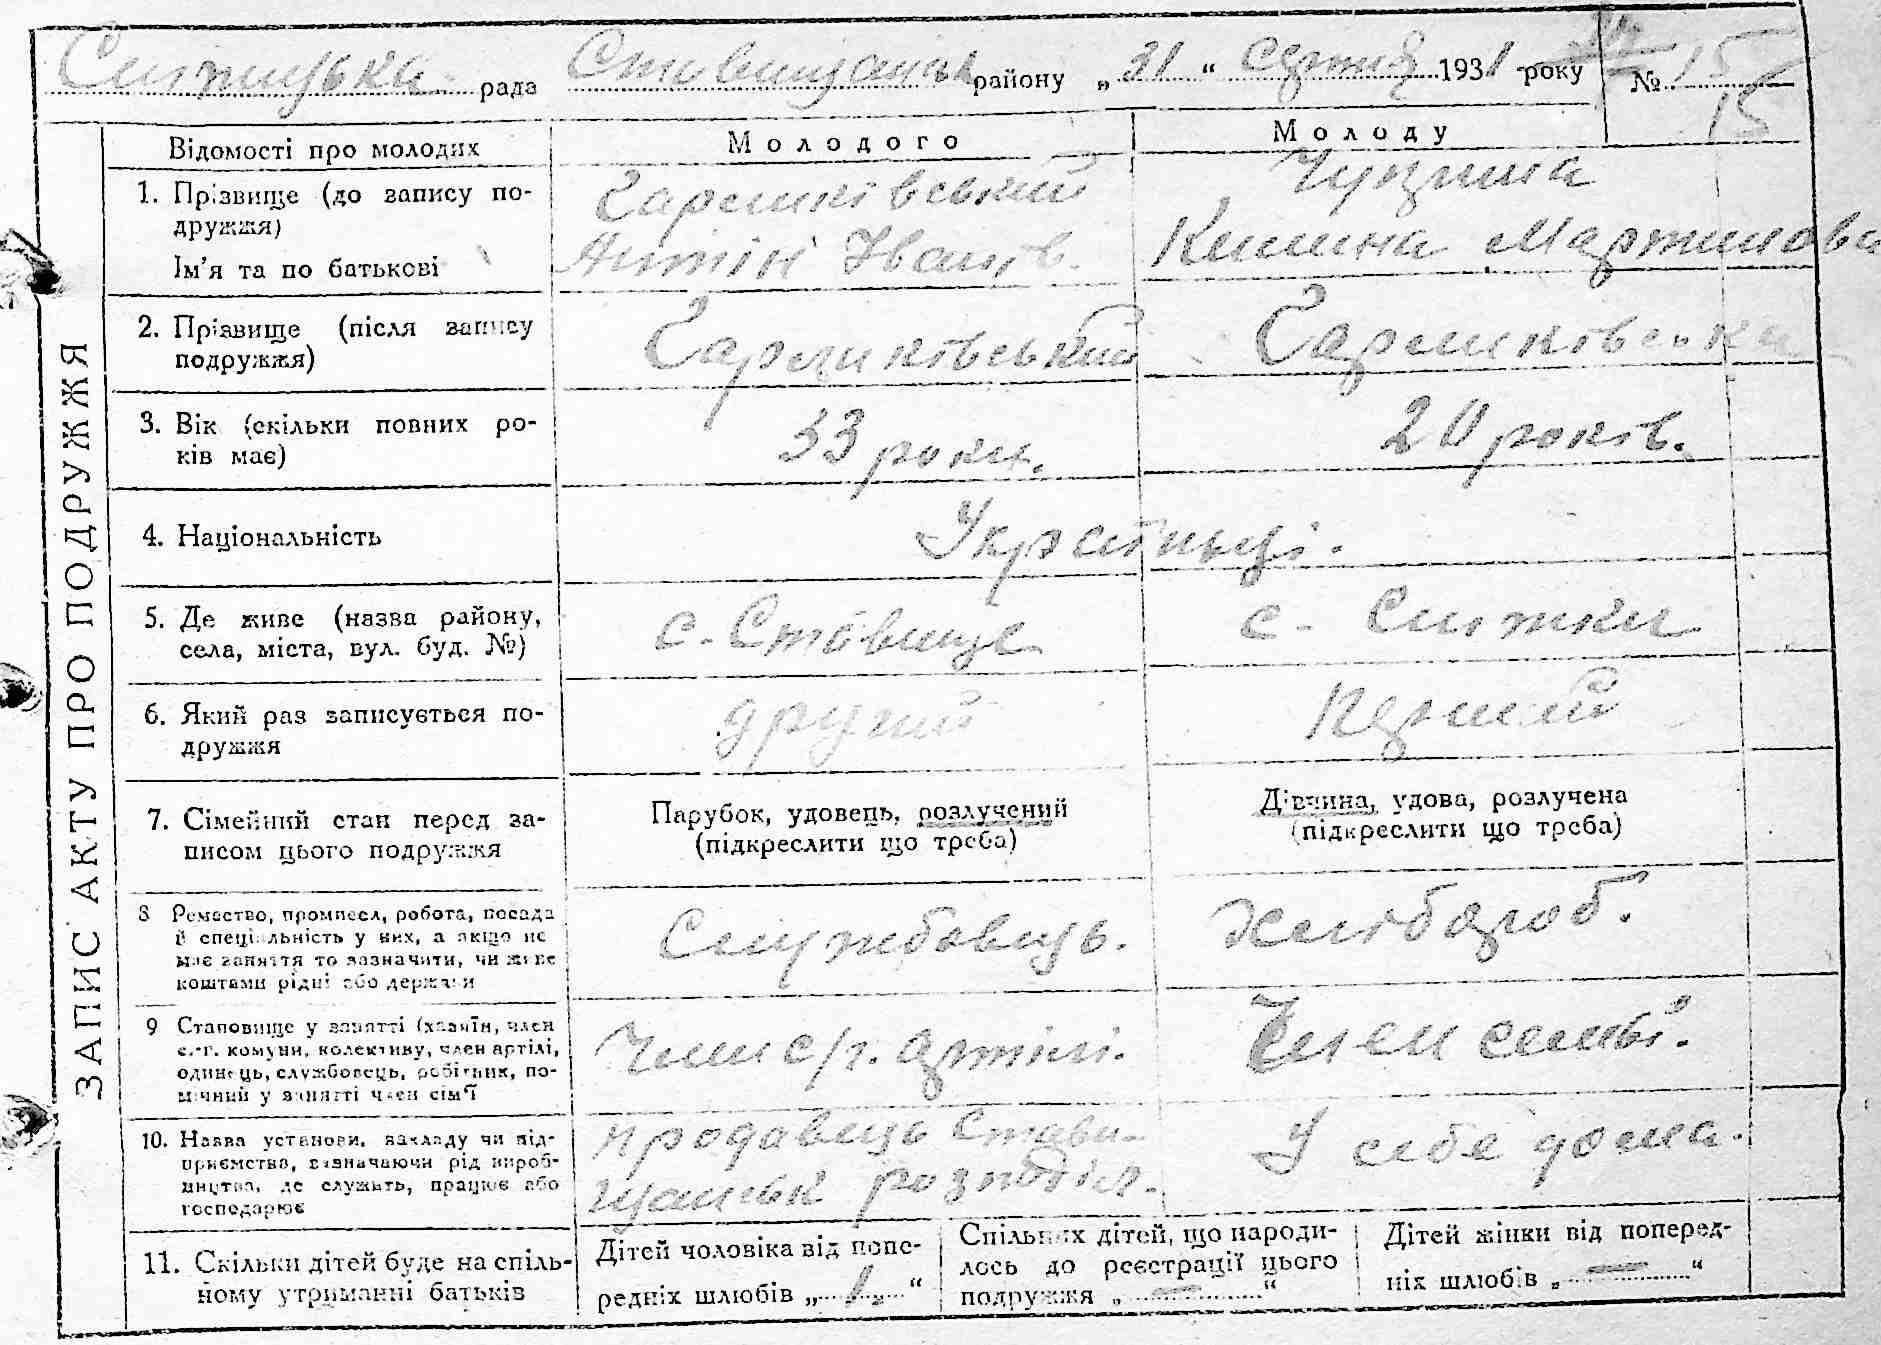 рада Ставищанськ району „31“ серпня 1931 року № 15
15
ЗАПИС АКТУ ПРО ПОДРУЖЖЯ
Відомості про молодих
Молодого
Молоду
1. Прізвище (до запису по-
дружжя)
Ім'я та по батькові
Антін Іванів.
Килина Мартинова
2. Прізвище (після запису
подружжя)
3. Вік (скільки повних ро-
ків має)
33 роки.
20 років.
4. Національність
Українці.
5. Де живе (назва району,
села, міста, вул. буд. №)
с. Ставище
с. Снтжки
6. Який раз записується по-
дружжя
другий
Перший
7. Сімейний стан перед за-
писом цього подружжя
Парубок, удовець, розлучений
(підкреслити що треба)
Дівчина, удова, розлучена
(підкреслити що треба)
8 Ремество, промисел, робота, посада
й спеціальність у них, а якщо не
має заняття то зазначити, чи живе
коштами рідні або держави
Службовець.
Хлібороб.
9 Становище у занятті (хазяїн, член
с.-г. комуни, колективу, член артілі,
одинець, службовець, робітник, по-
мічний у занятті член сім'ї
Член с/г. артілі.
Член семьї.
10. Назва установи, закладу чи під-
приємства, визначаючи рід вироб-
ництва, де служить, працює або
господарює
продавець Стави-
щанськ розподіл.
У себе дома.
11. Скільки дітей буде на спіль-
ному утриманні батьків
Дітей чоловіка від попе-
редніх шлюбів „ 1. “
Спільних дітей, що народи-
лось до реєстрації цього
подружжя „ — “
Дітей жінки від поперед-
ніх шлюбів „ — “